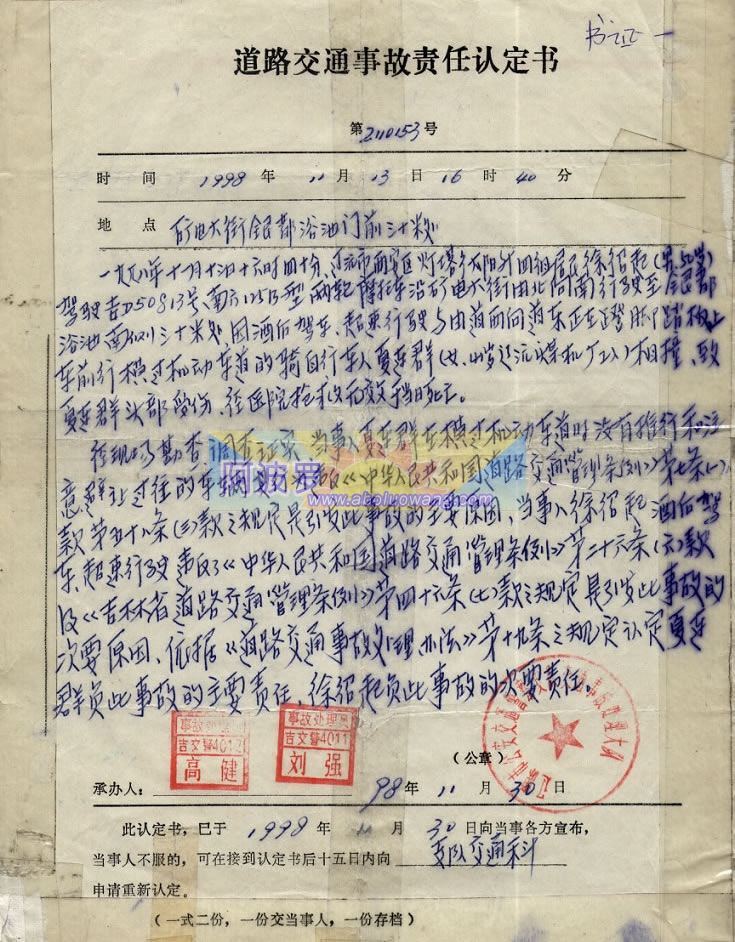 书证一
道路交通事故责任认定书
第2110153号
时 间 1998 年 11 月 13 日 16 时 40 分
地 点 矿电大街银都浴池门前三十米处
一九九八年十一月十三日十六时四十分,辽源市西安区灯塔 太阳升四组居民徐绍起
驾驶吉D50813号南方125B型两轮摩托车沿矿电大街由北向南行驶至银都
浴池南侧三十米处,因酒后驾车、超速行驶与由道西向道东正在
车前行横过机动车道的骑自行车人夏连群(女、 岁辽源煤机厂工人)相撞、致
夏连群头部受伤、经医院抢救无效于当日死亡。
经现场勘查、调查证实、当事人夏连群在横过机动车道时没有推行和注
意避让过往的车辆 《中华人民共和国道路交通管理条例》第七条(一)
款第五十八条(三)款之规定是引发此事故的主要原因、当事人徐绍起酒后驾
车、超速行驶违反了《中华人民共和国道路交通管理条例》第二十六条(六)款
及《吉林省道路交通管理条例》第四十六条(七)款之规定是引发此事故的
次要原因、依据《道路交通事故处理办法》第十九条之规定认定夏连
群负此事故的主要责任、徐绍起负此事故的次要责任。
阿波罗
www.aboluowang.com
事故处理员
吉交警4011
刘强
吉交警4012
高健
(公章)
承办人:
98年 11 月 30 日
此认定书,已于 1998 年 11 月 30 日向当事各方宣布,
当事人不服的,可在接到认定书后十五日内向 支队交通科
申请重新认定。
(一式二份,一份交当事人,一份存档)